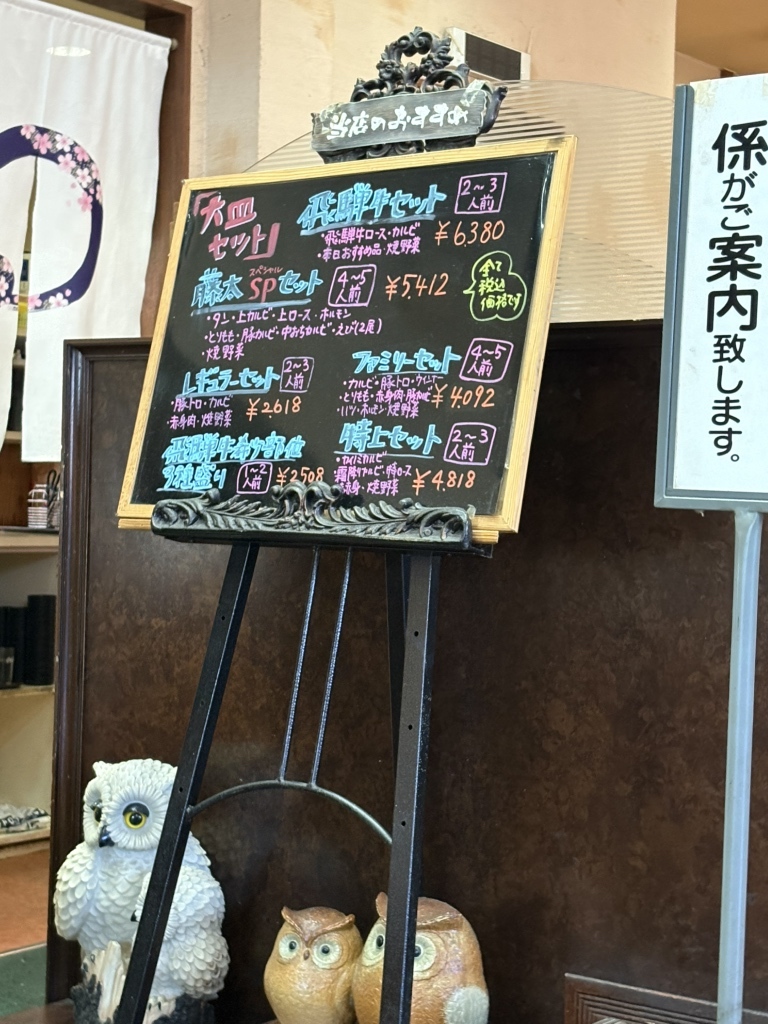 当店のおすすめ
「大皿
セット」
飛騨牛セット
2～3
人前
・飛騨牛ロース・カルビ
・本日おすすめ品・焼野菜
¥6,380
スペシャル
藤太SPセット
4～5
人前
¥5,412
全て
税込
価格です
・タン・上カルビ・上ロース・ホルモン
・とりもも・豚カルビ・中おちカルビ・えび(2尾)
焼野菜
レギュラーセット
2～3
人前
・豚トロ・カルビ
・赤身肉・焼野菜
¥2618
ファミリーセット
4～5
人前
・カルビ・豚トロ・ウインナー
・とりもも・赤身肉・豚カルビ
・ホルモン・焼野菜
¥4,092
飛騨牛希少部位
3種盛り
1～2
人前
¥2508
特上セット
2～3
人前
・カイノミカルビ
・霜降カルビ・特ロース
・赤身・焼野菜
¥4,818
係がご案内致します。